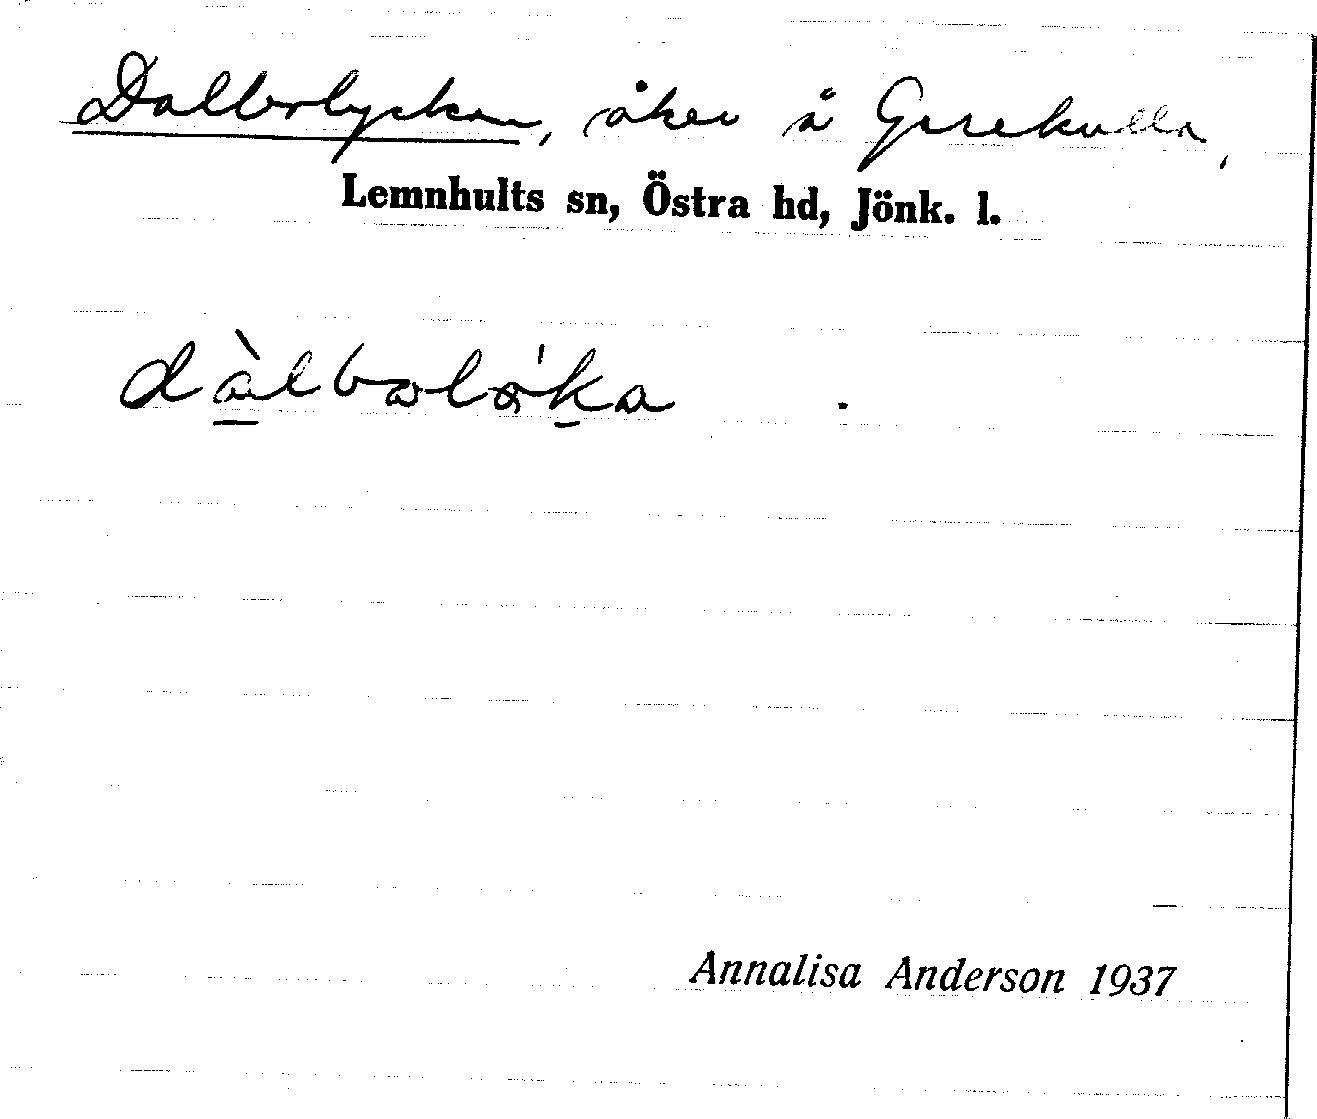 Dalbolyckan, åker å Grsekulla,
Lemnhults sn, Östra hd, Jönk. l.
dàlbolø'ka
Annalisa Anderson 1937